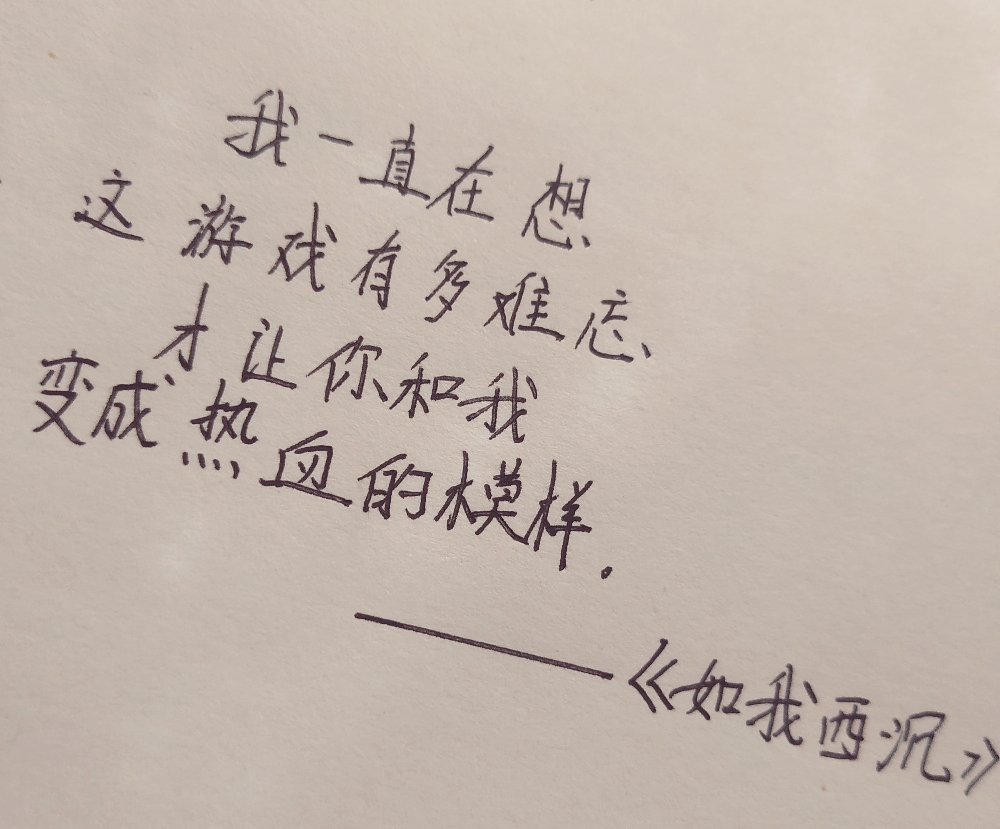 我一直在想
这游戏有多难忘
才让你和我
变成热血的模样.
——《如我西沉》